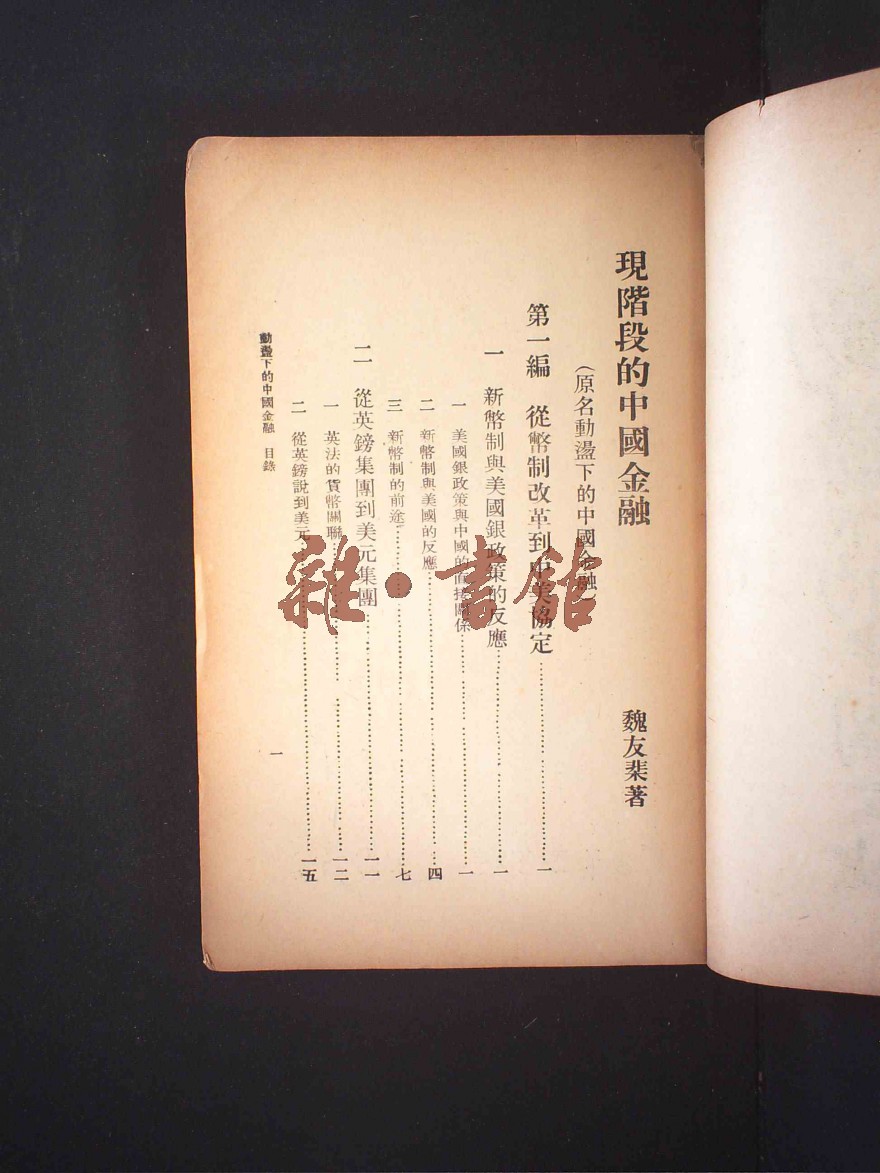 現階段的中國金融
魏友棐著
(原名動盪下的中國金融)
第一編 從幣制改革到中美協定……一
一 新幣制與美國銀政策的反應……一
一 美國銀政策與中國的直接關係……一
二 新幣制與美國的反應……四
三 新幣制的前途……七
二 從英鎊集團到美元集團……一一
一 英法的貨幣關聯……一二
二 從英鎊說到美元……一五
動盪下的中國金融 目錄
一
雜·書館